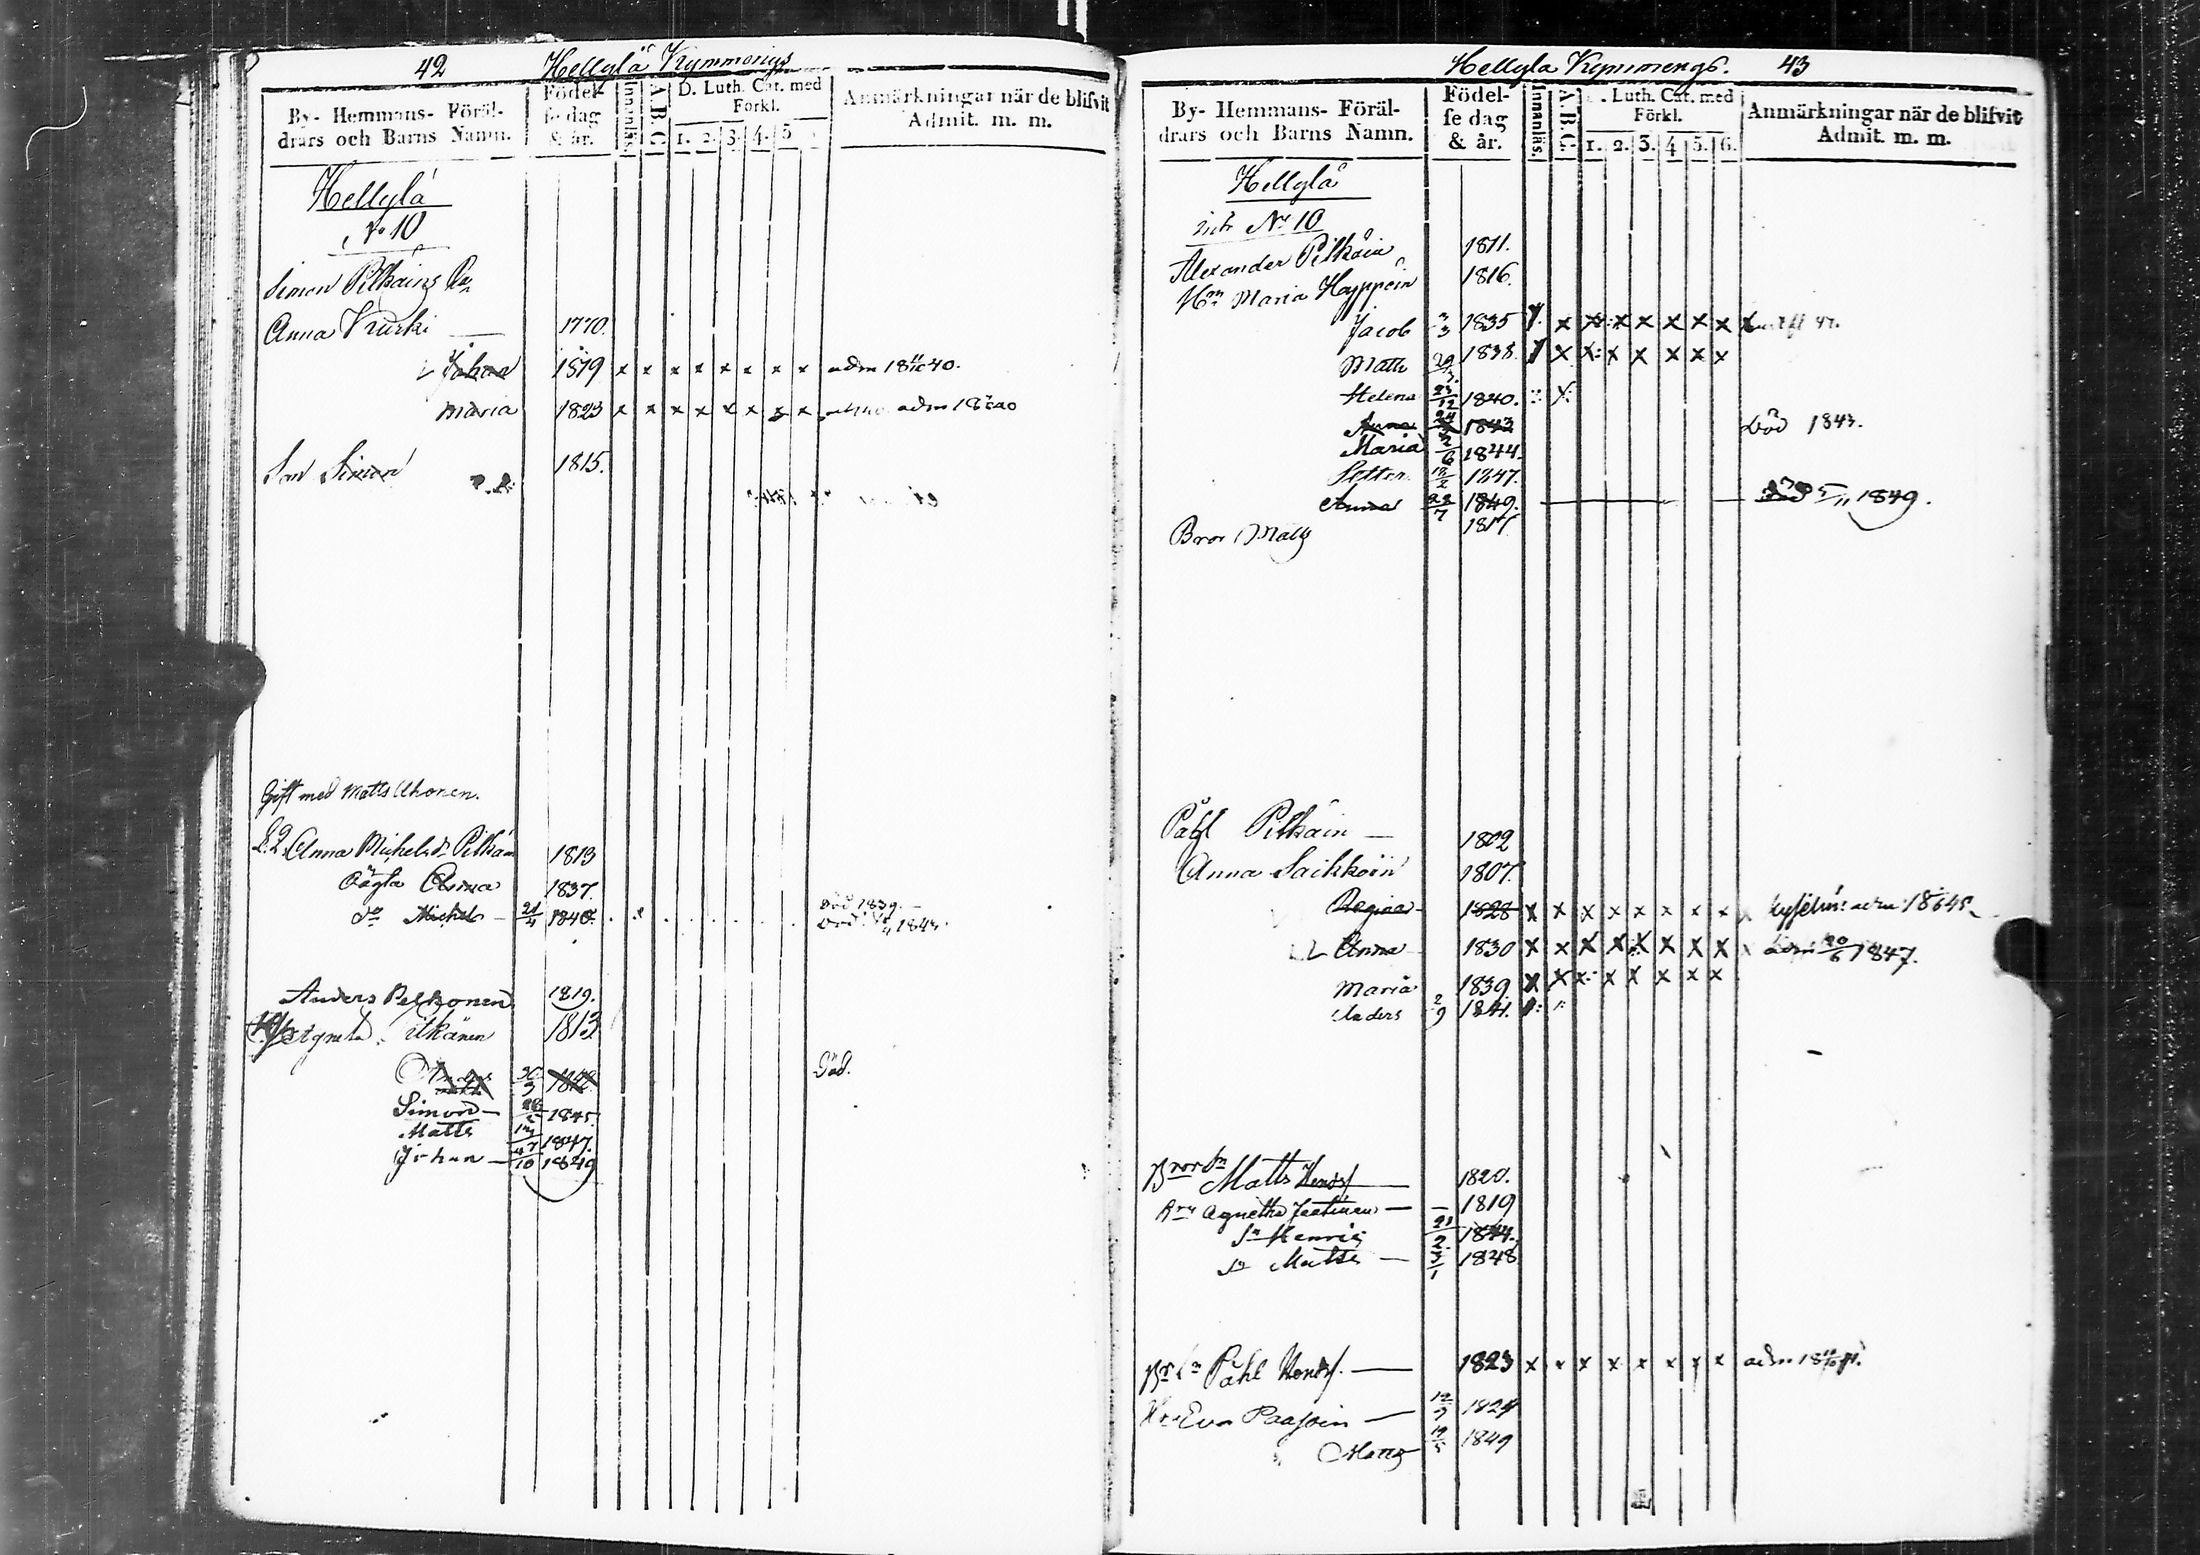 42 Hellylä Kymmenys
By- Hemmans- Föräl-
drars och Barns Namn.
Födel-
se dag
& år.
Innanläs.
A.B.C.
D. Luth. Cat. med
Förkl.
1. 2. 3. 4. 5
Anmärkningar när de blifvit
Admit. m. m.
Hellylä
No 10
Simon Pitkäins
Anna Kurki 1770.
Johan 1819 x x x x x x x x adm 18 40.
Maria 1823 x x x x x x x x adm 18 40
Son Simon 1815.
Gift med Matts Ahonen.
Anna Michelsdr Pitkäin 1813
Oägta Anna 1837.
Död 1839.
Do Michel 21/4 1840.
Död 1843.
Anders Pelkonen 1819.
Agneta Pitkänen 1813
30/9
Död.
Simon 1845.
Matts 1847.
Johan 10 1849
Hellyla Kymmengs. 43
By- Hemmans- Föräl-
drars och Barns Namn.
Födel-
se dag
& år.
Innanläs.
A.B.C.
Luth. Cat. med
Förkl.
1. 2. 3. 4 5. 6.
Anmärkningar när de blifvit
Admit. m. m.
Hellylä
No 10
Alexander Pitkäin 1811.
Maria Hoppoin 1816.
Jacob 3/3 1835 x x x x x x x
Matts 1838. x x x x x x x
Helena 23/12 1840.
Anna 1843 Död 1843.
Maria 2/6 1844.
Petter 12/2 1847.
Anna 22/7 1849. död 5/11 1849.
Bror Matts 1817
Påhl Pitkäin 1802
Anna Saikkoin 1807.
Regina 1828 x x x x x x x x
Anna 1830 x x x x x x x x 20/6 1847.
Maria 1839 x x x x x x x x
Anders 2/9 1841.
Brorsn Matts Hendss 1820.
Agnetha 1819
Sn Henric 21/2 1844.
Sn Matts 3/1 1848
Påhl Hendss. 1823 x x x x x x x x adm 18
Eva Paasoin 12/9 1824
Matts 19/5 1849